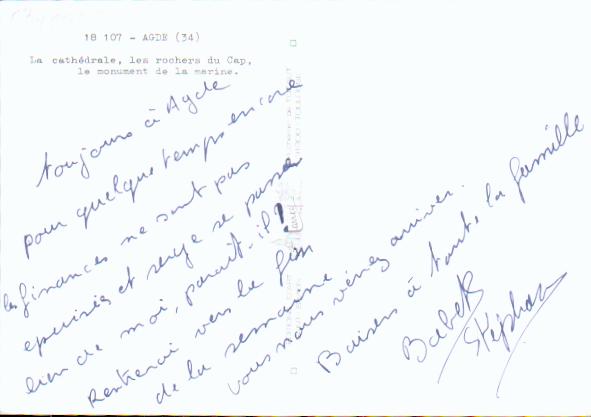 18 107 - AGDE (34)
La cathédrale, les rochers du Cap,
le monument de la marine.
toujours à Agde
pour quelque temps encore
les finances ne sont pas
epuisées et serge se passe
bien de moi, parait-il!
Rentrerai vers la fin
de la semaine
vous nous verrez arriver.
Baisers à toute la famille
Babeth
Stéphan